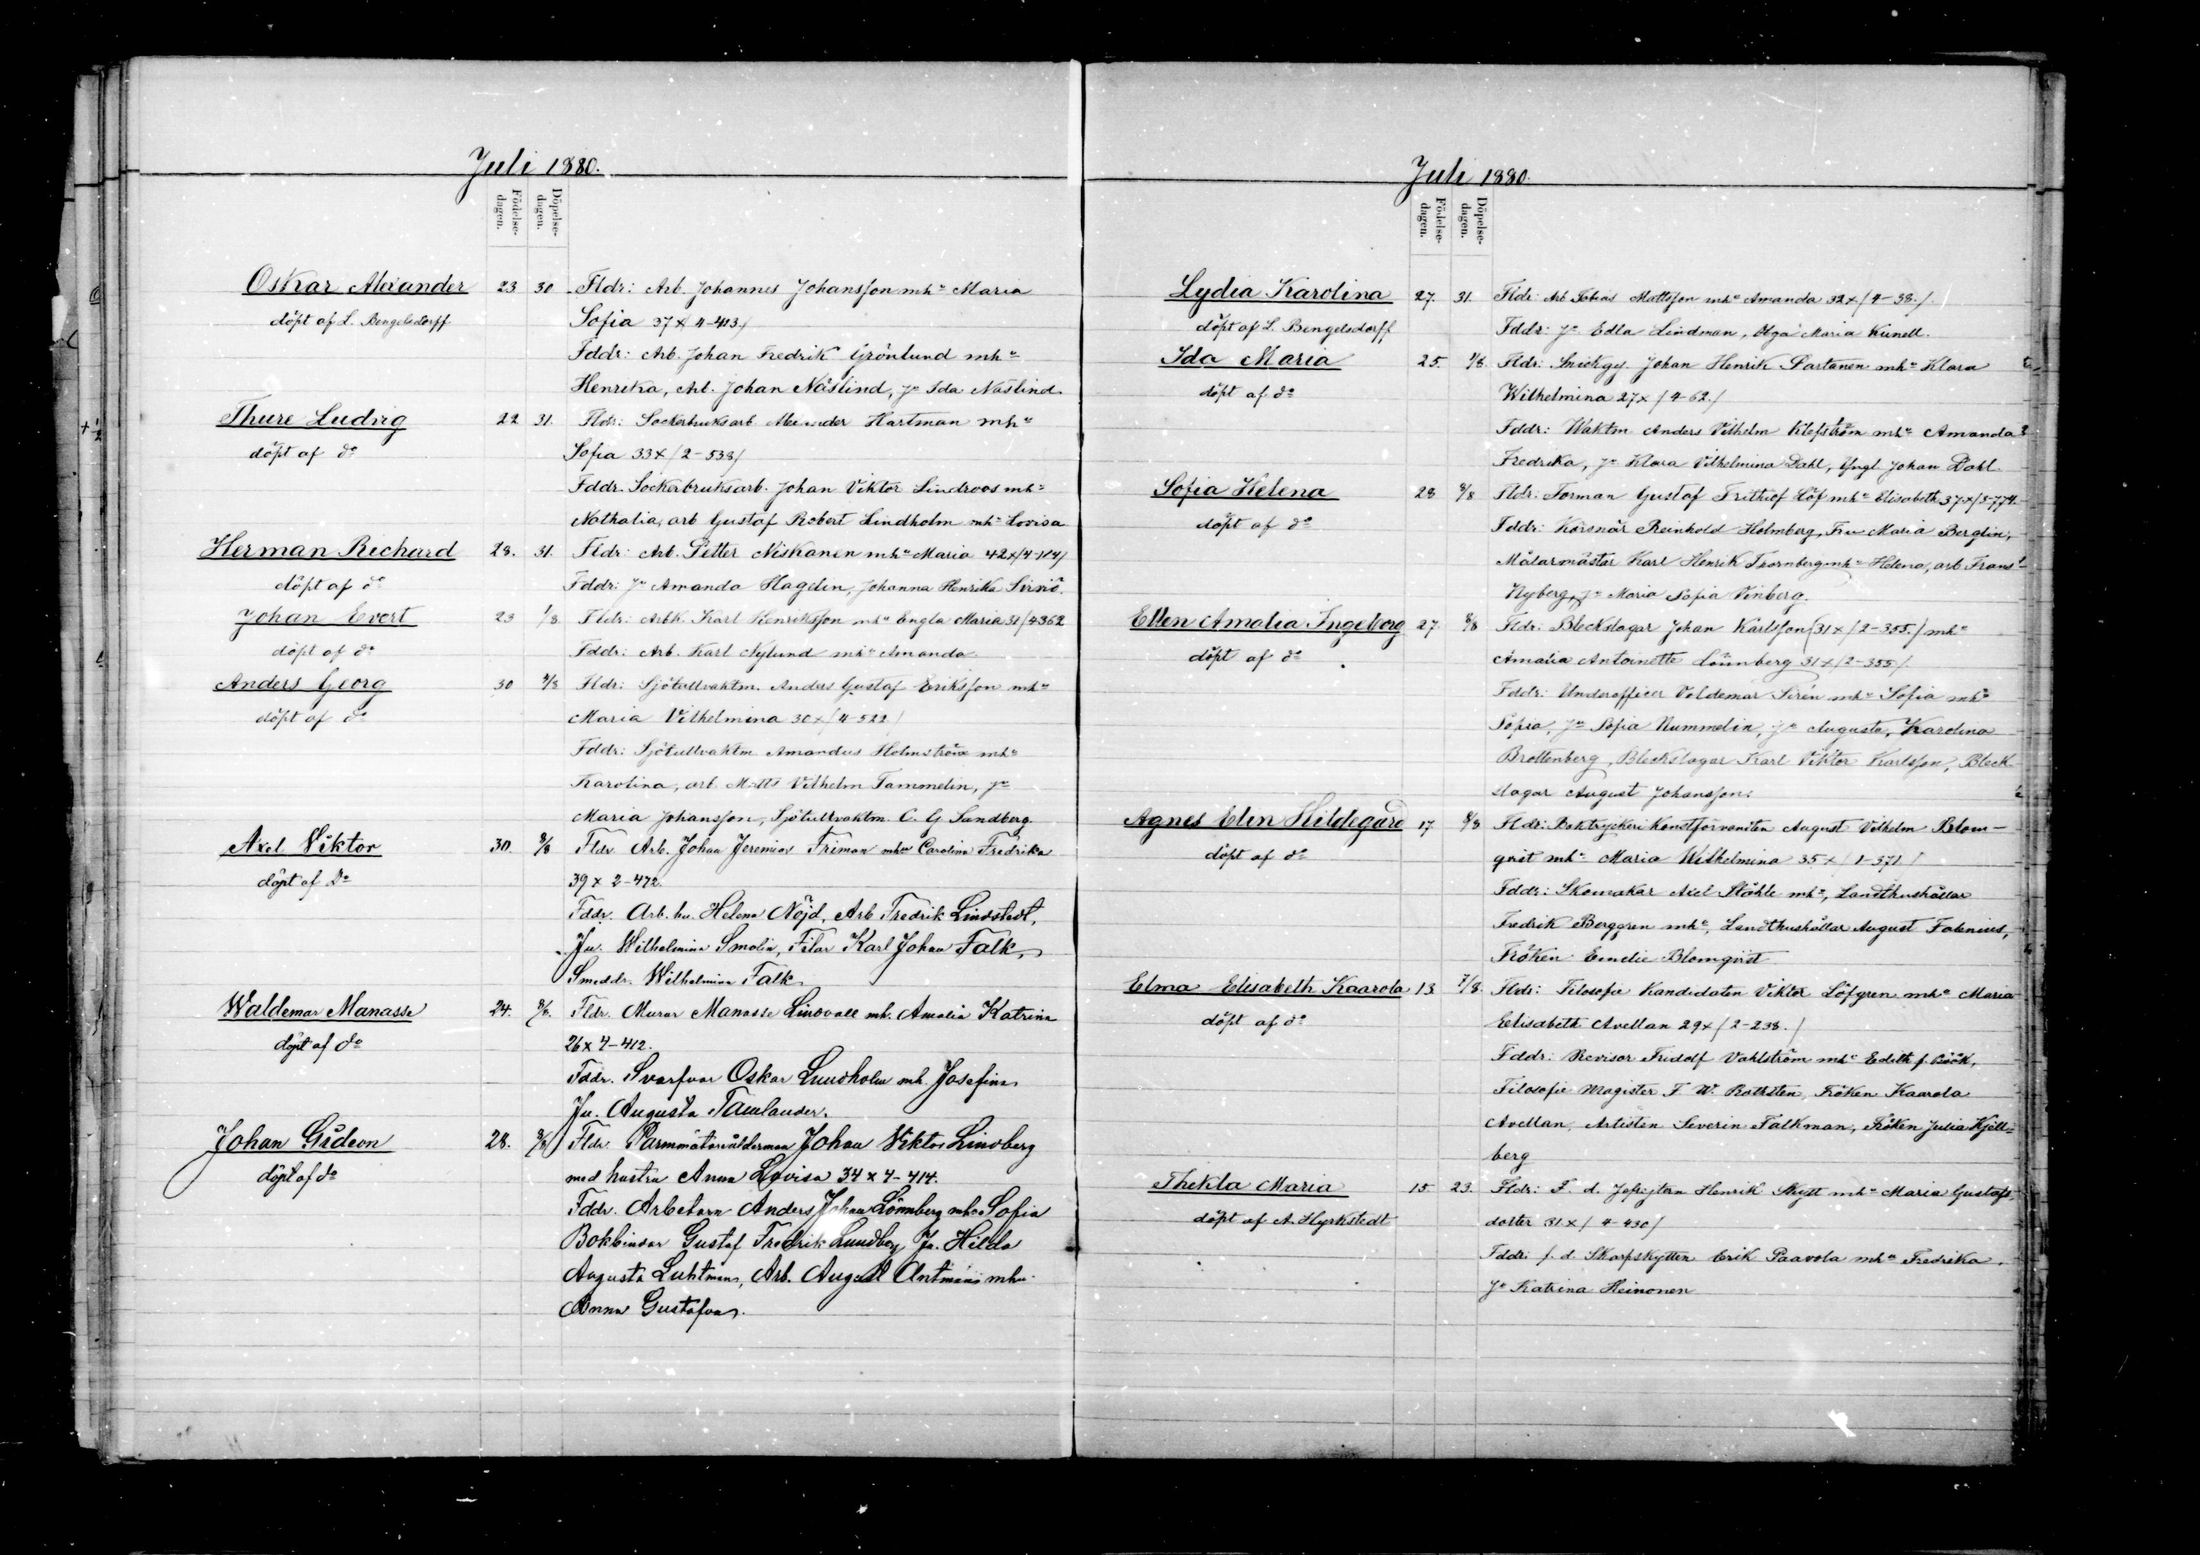 Juli 1880.
Födelse-dagen.
Döpelse-dagen.
Oskar Alexander 23 30 Fldr: Arb. Johannes Johansson mh:u Maria
döpt af L. Bengelsdorff Sofia 37 x/4-413/
Fddr: Arb. Johan Fredrik Grönlund mh:u
Henrika, Arb. Johan Näslind, J:u Ida Näslind
Thure Ludvig 22 31. Fldr: Sockerbruksarb. Alexander Hartman mh:u
döpt af d:o Sofia 33 x/2-538/
Fddr. Sockerbruksarb. Johan Viktor Lindroos mh:u
Nathalia, arb Gustaf Robert Lindholm mh:u Lovisa
Herman Richard 28. 31. Fldr: Arb. Petter Niskanen mh:u Maria 42x/4-114/
döpt af d:o Fddr: J:u Amanda Hagelin, Johanna Henrika Sirniö.
Johan Evert 23 1/8 Fldr: Arbk. Karl Henriksson mh:u Engla Maria 31/4362
döpt af d:o Fddr: Arb. Karl Nylund mh:u Amanda
Anders Georg 30 3/8 Fldr: Sjötullvaktm. Anders Gustaf Eriksson mh:u
döpt af d:o Maria Vilhelmina 30 x/4-522/
Fddr: Sjötullvaktm Amandus Holmström mh:u
Karolina, arb. Matts Vilhelm Tammelin, J:u
Maria Johansson, Sjötullvaktm. C. G. Sandberg
Axel Viktor 30. 8/8 Fldr Arb. Johan Jeremias Friman mhu Carolina Fredrika
döpt af D:o 39 x 2-472.
Fddr. Arb. hu. Helena Nöjd, Arb Fredrik Lindstedt,
Ju. Wilhelmina Smolin, Filar Karl Johan Falk,
Smeddr. Wilhelmina Falk
Waldemar Manasse 24. 8/8. Fldr. Murar Manasse Lindvall mh. Amalia Katrina
döpt af d:o 26 x 4-412.
Fddr. Svarfvar Oskar Lundholm mh. Josefina
Ju. Augusta Tawlander.
Johan Gideon 28. 8/8 Fldr. Parmmätareålderman Johan Viktor Lindberg
döpt af d:o med hustru Anna Lovisa 34 x 4-414.
Fddr. Arbetarn Anders Johan Lönnberg mhu Sofia
Bokbindar Gustaf Fredrik Lundberg, Ju. Hilda
Augusta Luhtman, Arb. August Antman mhu
Anna Gustafva.
Juli 1880.
Födelse-dagen.
Döpelse-dagen.
Lydia Karolina 27. 31. Fldr: Arb Tobias Mattsson mh:u Amanda 32x/4-38./
döpt af L. Bengelsdorff Fddr: J:u Edla Lindman, Olga Maria Kunell.
Ida Maria 25. 1/8. Fldr: Snickgs. Johan Henrik Partanen mh:u Klara
döpt af d:o Wilhelmina 27x /4-62./
Fddr: Waktm Anders Vilhelm Klefström mh:u Amanda
Fredrika, J:u Klara Vilhelmina Dahl, Yngl Johan Dahl.
Sofia Helena 28 8/8 Fldr: Forman Gustaf Frithiof Löf mh:u Elisabeth 37x/3-774.
döpt af d:o Fddr: Körsnär Reinhold Holmberg, Fru Maria Berglin,
Målarmästar Karl Henrik Thornberg mh:u Helena, arb Frans
Nyberg, J:u Maria Sofia Vinberg.
Ellen Amalia Ingeborg 27. 8/8 Fldr: Bleckslagar Johan Karlsson (31x/2-355./ mh:u
döpt af d:o Amalia Antoinette Lönnberg 31x/2-355/.
Fddr: Underofficer Valdemar Sirén mh:u Sofia mh:u
Sofia, J:u Sofia Nummelin, J:u Augusta, Karolina
Brottenberg, Bleckslagar Karl Viktor Karlsson, Bleck-
slagar August Johansson.
Agnes Elin Hildegard 17 8/8 Fldr: Boktryckeri Konstförvandten August Vilhelm Blom-
döpt af d:o qvist mh:u Maria Wilhelmina 35 x/1-371/
Fddr: Skomakar Axel Ståhle mh:u, Landthushållar
Fredrik Berggren mh:u, Landthushållar August Fabenius,
Fröken Emelie Blomqvist
Elma Elisabeth Kaarola 13 7/8. Fldr: Filosofie Kandidaten Viktor Löfgren mh:u Maria
döpt af d:o Elisabeth Avellan 29x/2-238./
Fddr: Revisor Fridolf Vahlström mh:u Edith f. Böök,
Filosofie Magister F. W. Rothsten, Fröken Kaarola
Avellan, Artisten Severin Falkman, Fröken Julia Kjell-
berg
Thekla Maria 15 23. Fldr: F. d. Henrik Skytt mh:u Maria Gustafs-
döpt af A. Hyrkstedt dotter 31x/4-430/
Fddr: f. d. Skarpskytten Erik Paavola mh:u Fredrika.
J:u Katrina Heinonen